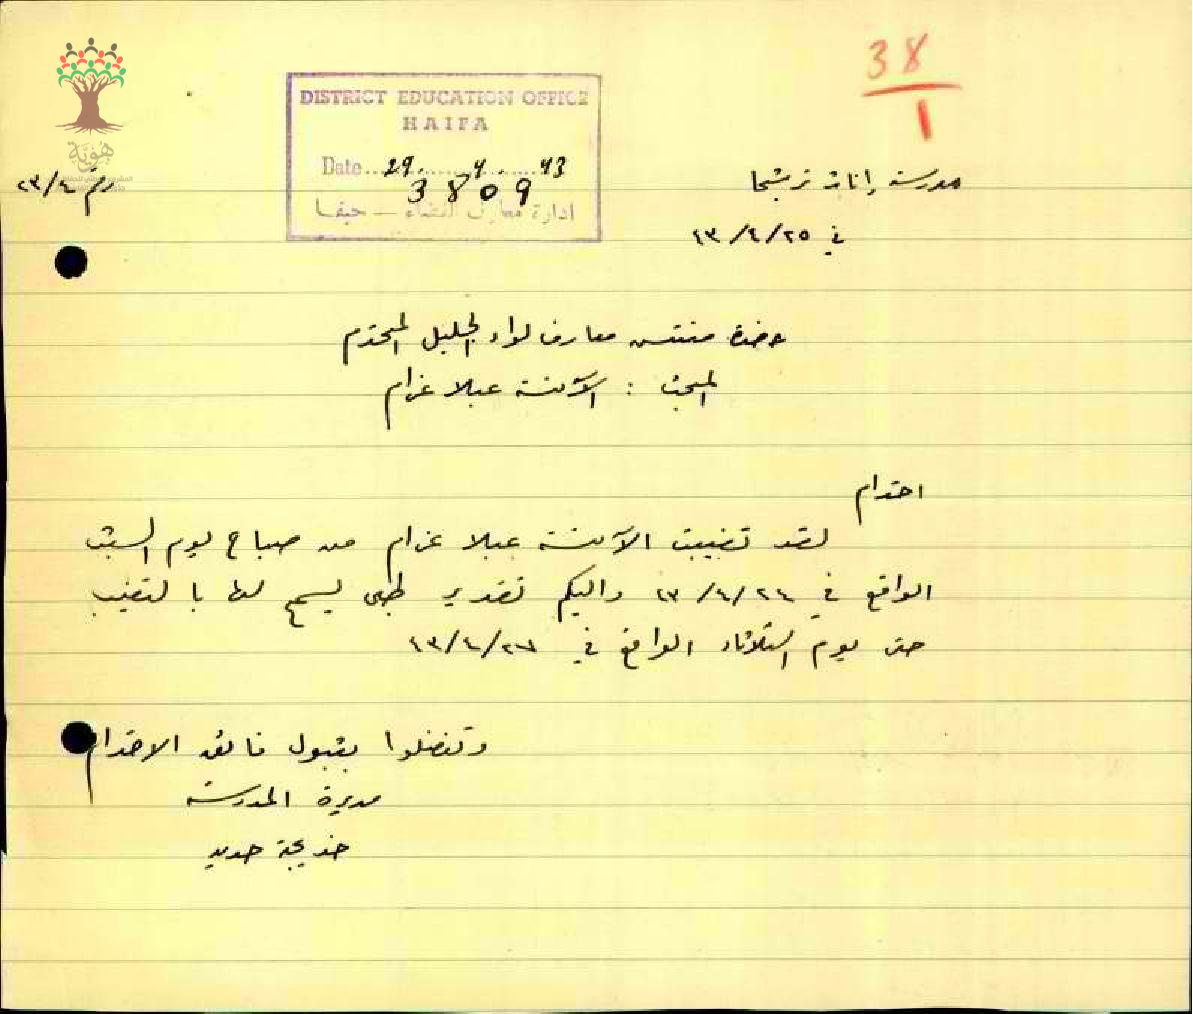 38
1
DISTRICT EDUCATION OFFICE
HAIFA
Date 29 4 43
3809
ادارة معارف القضاء – حيفا
هوية
مدرسة إناث ترشيحا
رقم ٢٣/٤
في ٢٥/٤/٤٣
حضرة مفتش معارف لواء الجليل المحترم
المبحث : الآنسة عبلا عزام
احترام
لقد تغيبت الآنسة عبلا عزام من صباح يوم السبت
الواقع في ٢٤/٤/٤٣ واليكم تقرير طبي يسمح لها بالتغيب
حتى يوم الثلاثاء الواقع في ٢٧/٤/٤٣
وتفضلوا بقبول فائق الاحترام
مديرة المدرسة
خديجة حديد